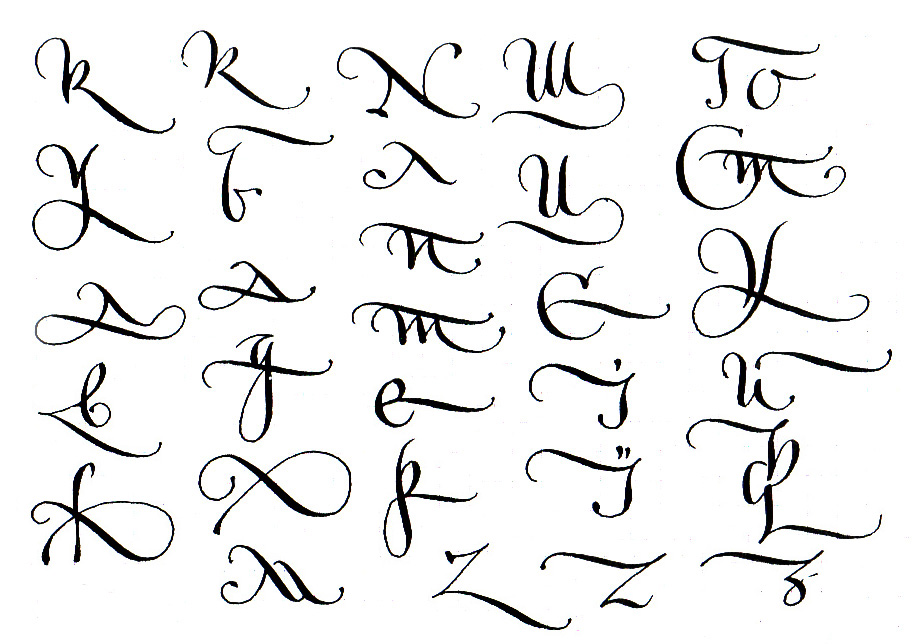 К К N Ш То
У Б Л И Ст
П
Л А т Є У
в у е і й
Ж Х р ї ф
М Z Z